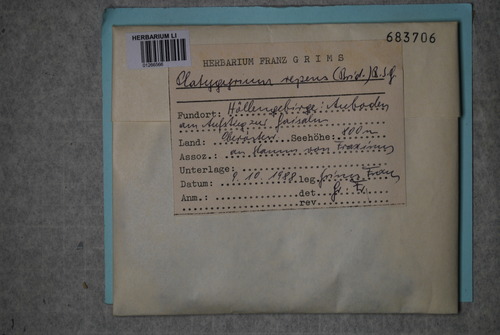 HERBARIUM LI
683706
HERBARIUM FRANZ GRIMS
Platygyrium repens (Brid.) B.S.G.
Fundort: Höllengebirge:
am Aufstieg zur
Land: Oberösterr. Seehöhe: 800 m
Assoz.: an Stamm von Fraxinus
Unterlage:
Datum: 9.10.1988 leg. Grims Franz
Anm.: det. Gr. F.
rev.